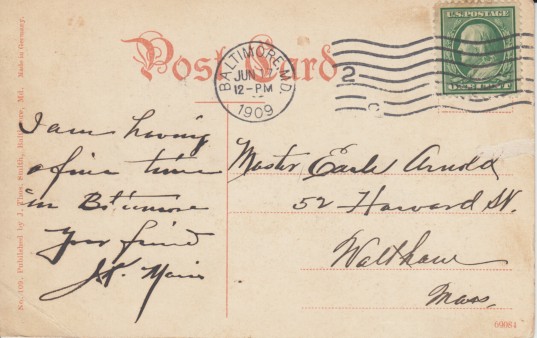 Post Card
BALTIMORE, MD.
JUN 17
12-PM
1909
2
C
U.S. POSTAGE
ONE CENT
I am having
a fine time
in Baltimore
Your friend
Master Earle Arnold
52 Howard St.
Waltham
Mass.
No. 109. Published by J. Thos. Smith, Baltimore, Md. Made in Germany.
09084